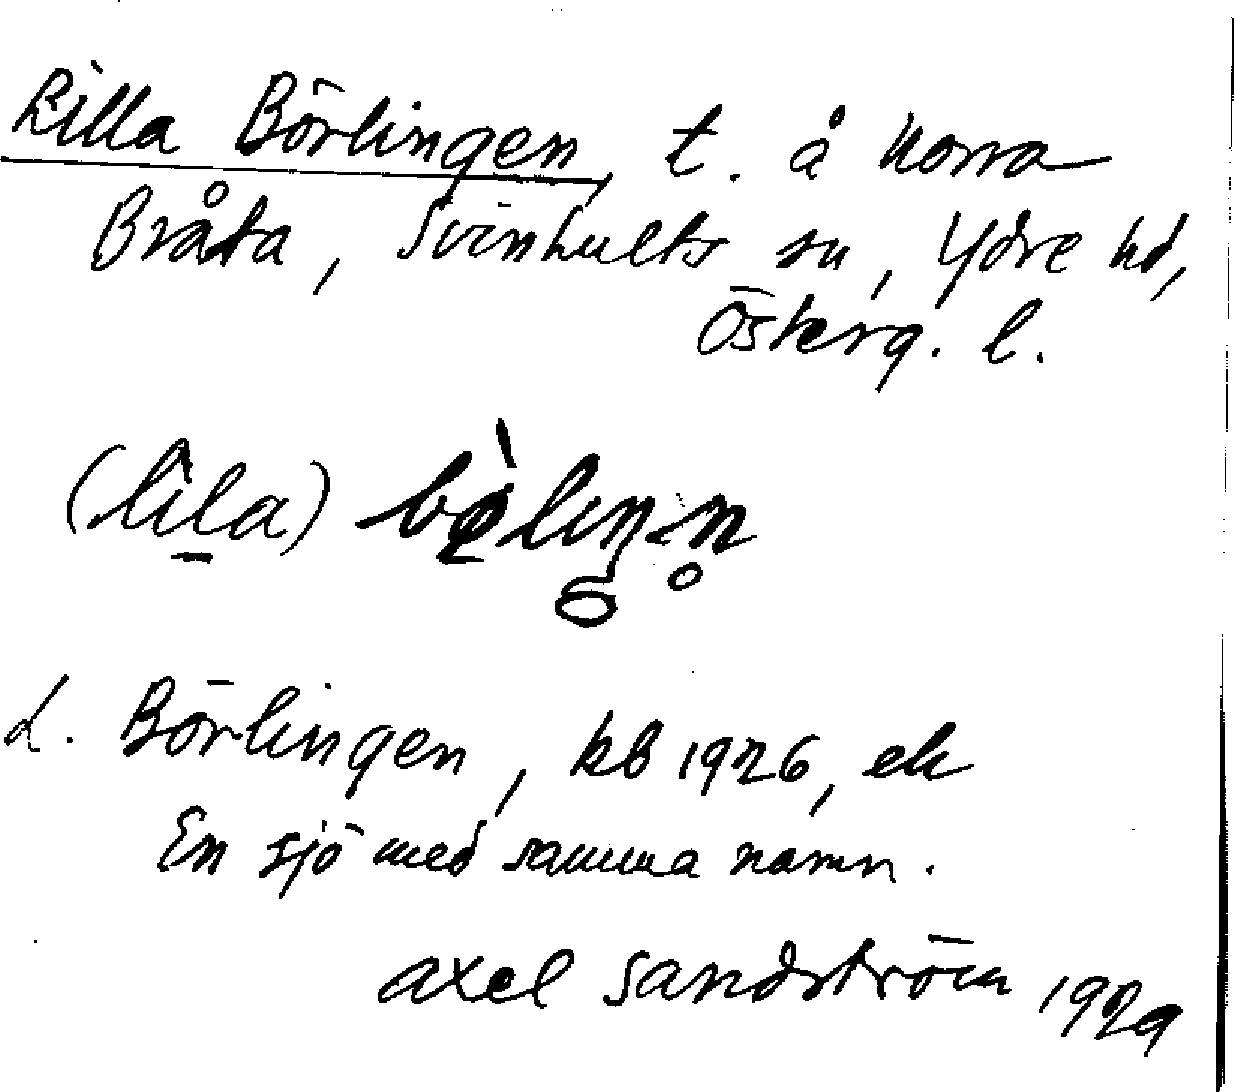 Lilla Börlingen, t. å Norra
Bråta, Svinhults sn, Ydre hd,
Österg. l.
(lìla) bø̀lıŋn̥
L. Börlingen, kb 1926, ek
En sjö med samma namn.
Axel Sandström 1929